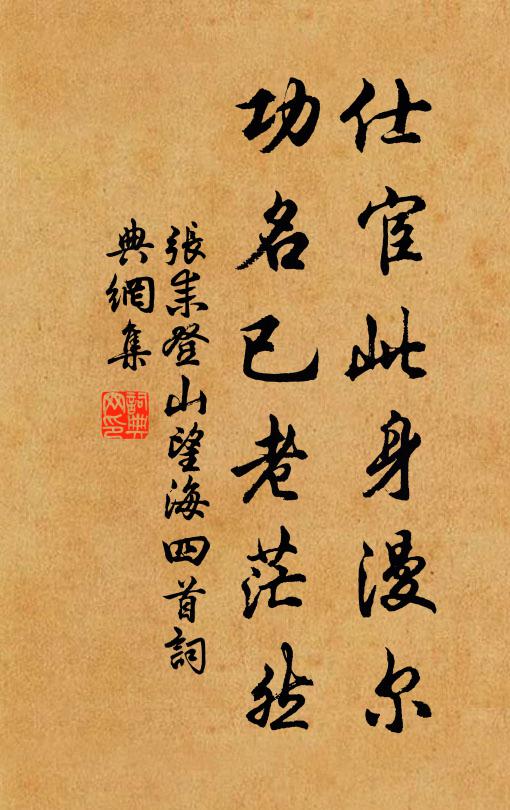 仕宦此身漫尔
功名已老茫然
張耒登山望海四首詞
典網集
詞典網印